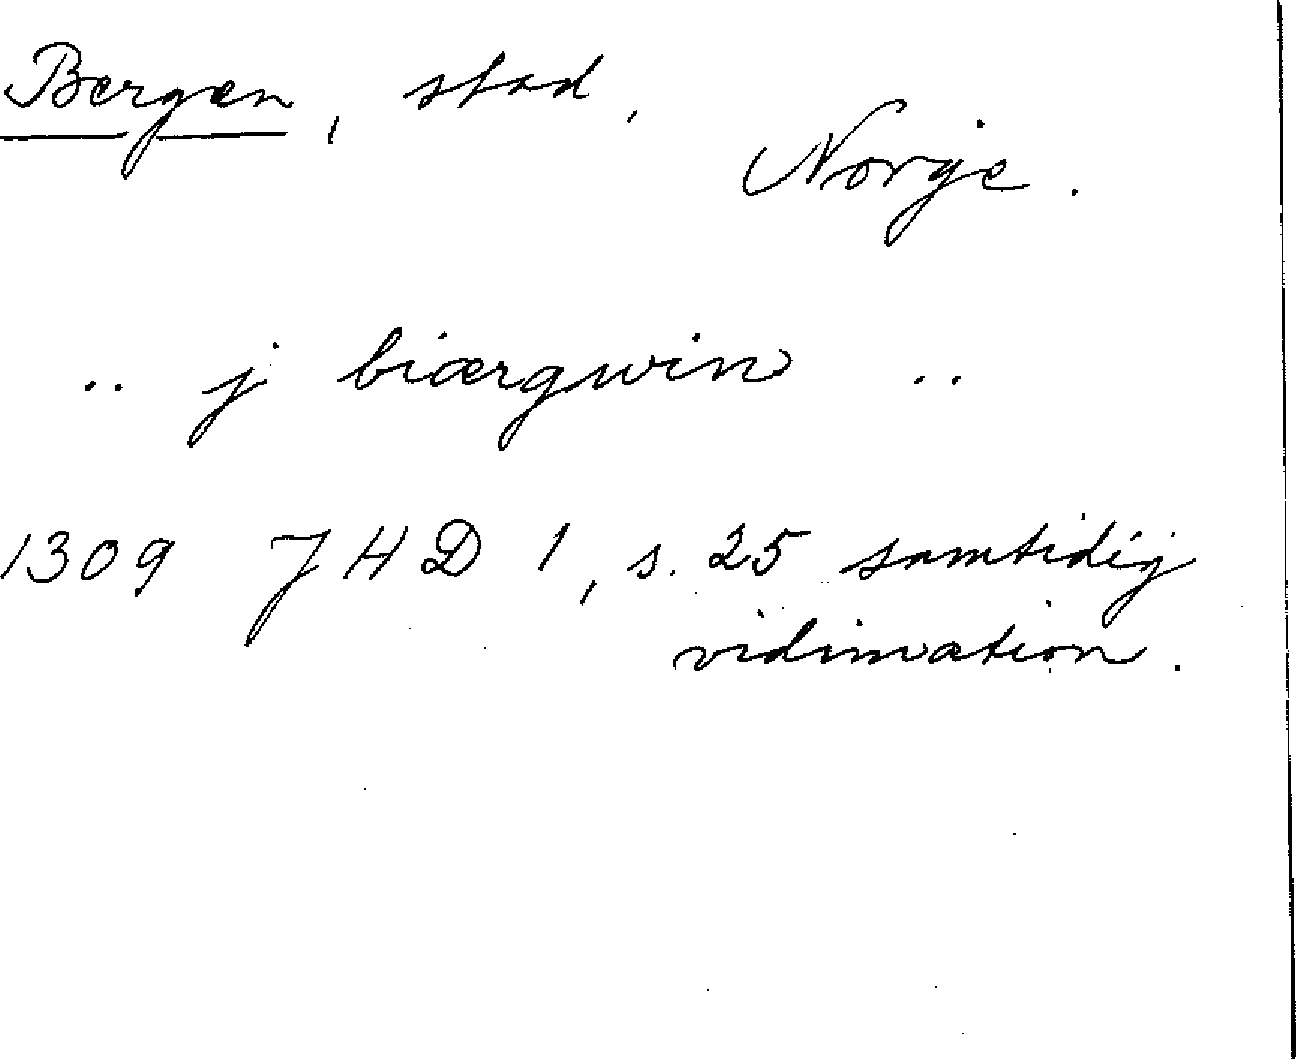 Bergen, stad,
Norge.
.. j biærgwin ..
1309 JHD 1, s. 25 samtidig
vidimation.